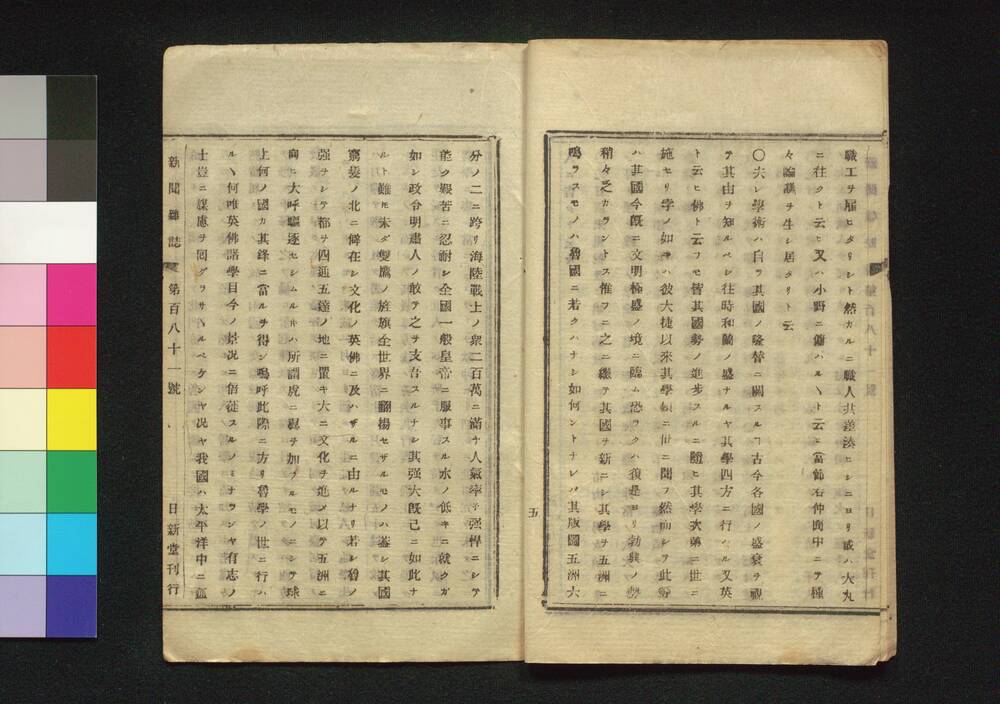 職工ヲ雇ヒタリシト然カルニ職人共差湊ヒシニヨリ或ハ大丸
ニ往クト云ヒ又ハ小野ニ傭ハルヽト云ヒ當節右仲間中ニテ種
々論議ヲ生シ居タリト云
〇夫レ學術ハ自ラ其國ノ隆替ニ關スルヿ古今各國ノ盛衰ヲ視
テ其由ヲ知ルベシ往時和蘭ノ盛ナルヤ其學四方ニ行ハル又英
ト云ヒ佛ト云フモ皆其國勢ノ進歩スルニ隨ヒ其學次第ニ世ニ
施セリ孛ノ如キハ彼大捷以來其學頓ニ世ニ聞フ然而シテ此諸
ハ其國今既ニ文明極盛ノ境ニ臨ム恐ラクハ復是ヨリ勃興ノ勢
稍々乏カラントス惟フニ之ニ繼テ其國ヲ新ニシ其學ヲ五洲ニ
鳴ラスモノハ魯國ニ若クハナシ如何ントナレハ其版圖五洲六
五
分ノ二ニ跨リ海陸戰士ノ衆二百萬ニ滿ナ人氣率子强悍ニシテ
能ク艱苦ニ忍耐シ全國一般皇帝ニ服事スル水ノ低キニ就クガ
如シ政令明肅人ノ敢テ之ヲ支吾スルナシ其强大既已ニ如此ナ
ルト雖モ未ダ雙鷹ノ旌旗全世界ニ翻揚セザルモノハ蓋シ其國
窮髮ノ北ニ僻在シ文化ノ英佛ニ及ハザルニ由ルナリ若シ魯ノ
强ヲシテ都ヲ四通五達ノ地ニ置キ大ニ文化ヲ進メ以テ五洲ニ
向ヒ大呼驅逐セシムルキハ所謂虎ニ翼ヲ加フルモノニシテ球
上何ノ國カ其鋒ニ當ルヲ得ン嗚呼此際ニ方リ魯學ノ世ニ行ハ
ルヽ何唯英佛諸學目今ノ景况ニ倍蓰スルノミナランヤ有志ノ
士豈ニ謀慮ヲ囘グラサヽルベケンヤ况ヤ我國ハ太平洋中ニ孤
新聞雜誌 第百八十一號 日新堂刊行